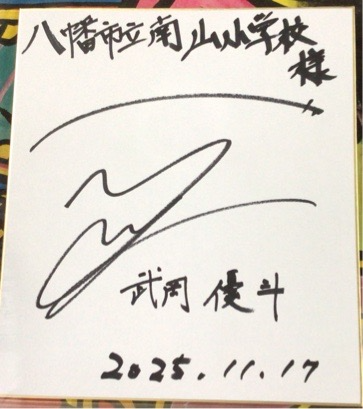 八幡市立南山小学校
様
武岡 優斗
2025.11.17